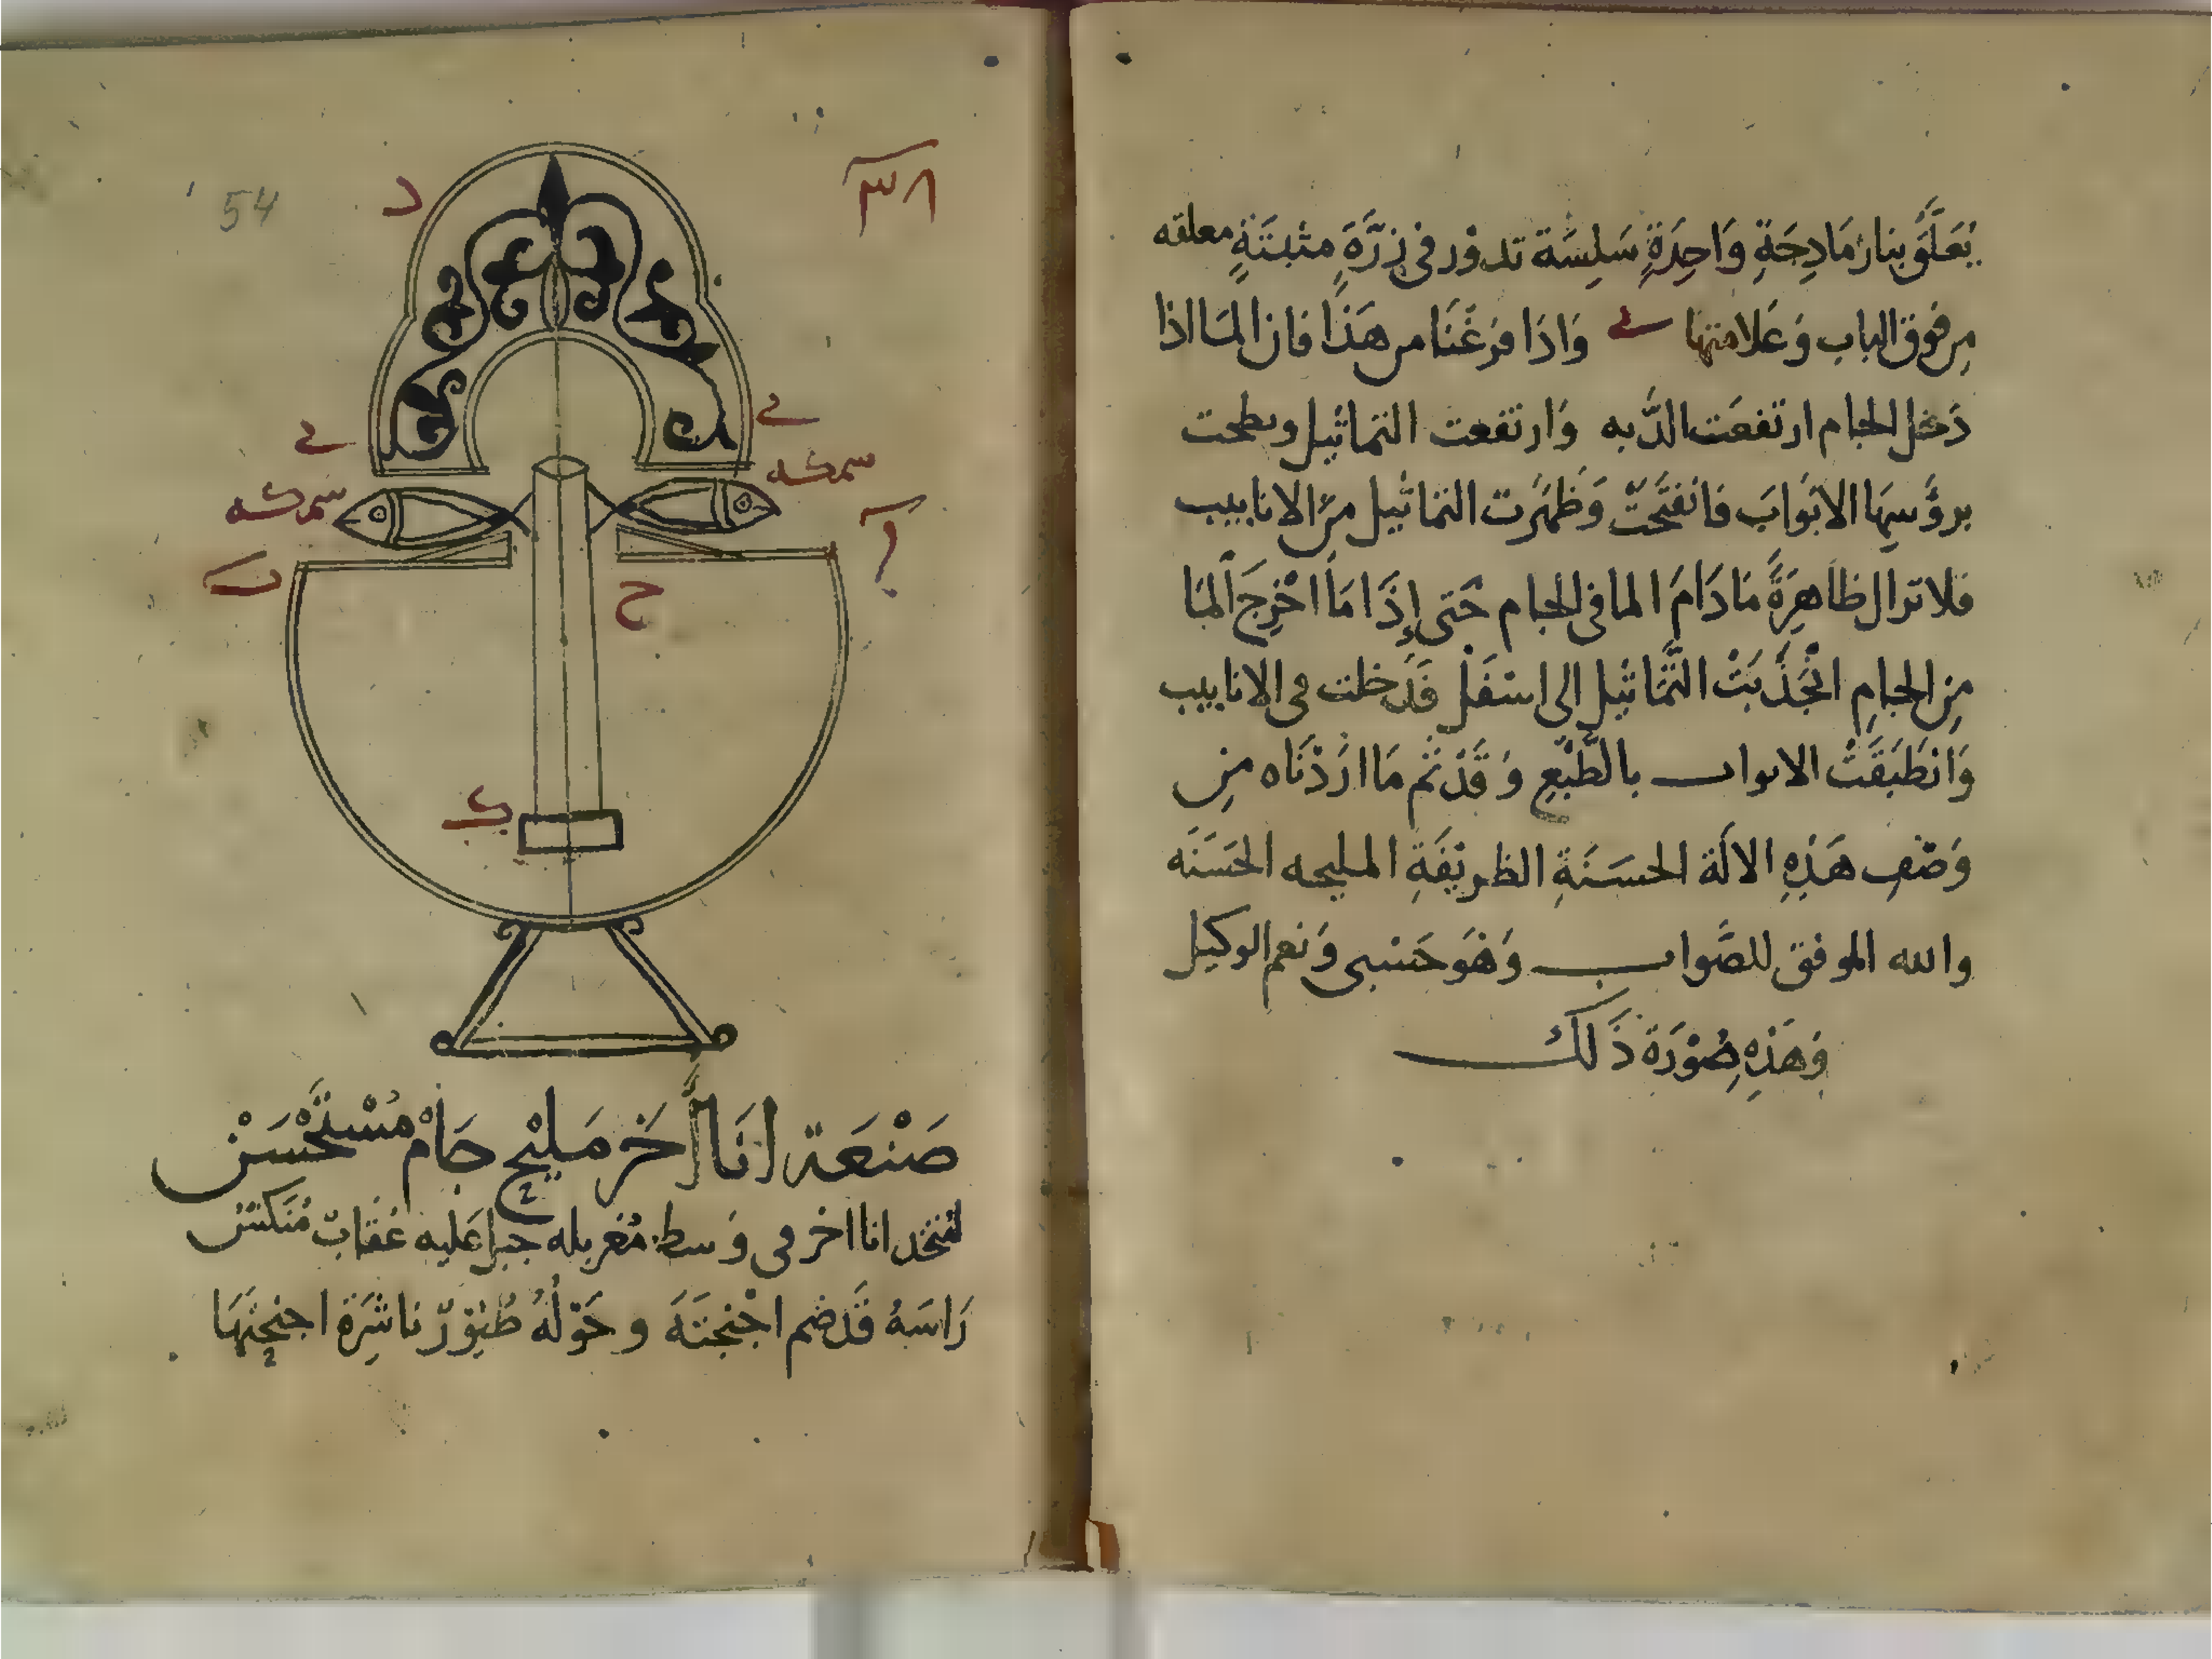 يُعَلَّقُ بنار مَادِجَةٍ وَاحِدَةٍ سَلِسَة تدور فى زرَّةٍ مثبتَةٍ معلقه
مِن فوق الباب وَعَلامتها ے وَاذَا فرَغْنَا من هَذَا فان المَا اذا
دَخل الجام ارتفعَت الدَّبه وَارتفعت التماثيل ونطحت
برؤُسِهَا الابوَابَ فَانفتَحَتْ وَظَهَرَت التماثيل مِنَ الانابيب
فلا تزال ظَاهِرَةً مَا دَامَ الما فى الجام حَتى إِذَا مَا اخْرِجَ المَا
مِنَ الجام انْجَذَبَتْ التَّمَاثيل الى اسْفَل فَدَخلت فى الانابيب
وَانطَبَقَتْ الابواب بالطَّبْعِ وَقَدْ تَم مَا ارَدْنَاه مِن
وَصْفِ هَذِهِ الالَة الحسَنَةِ الظريفَةِ المليحه الحَسَنَه
والله الموفق للصَّواب وَهُوَ حَسْبى وَنعم الوكيل
وَهَذِهِ صُوْرَة ذَلك
٣٨
54
د
ے
ے
سمكه
سمكه
ا
ب
ح
ك
صَنْعَة انَا أَخَر مَليْح جَامْ مُسْتَحْسَنْ
لنتخد انا اخر فى وَسطه مُغربله جبل عَليه عُقابٌ مُنَكسٌ
رَاسَهُ قَد ضم اجْنحتَهَ وحَوْلهُ طُيوْرٌ نَاشرَة اجنحتهَا